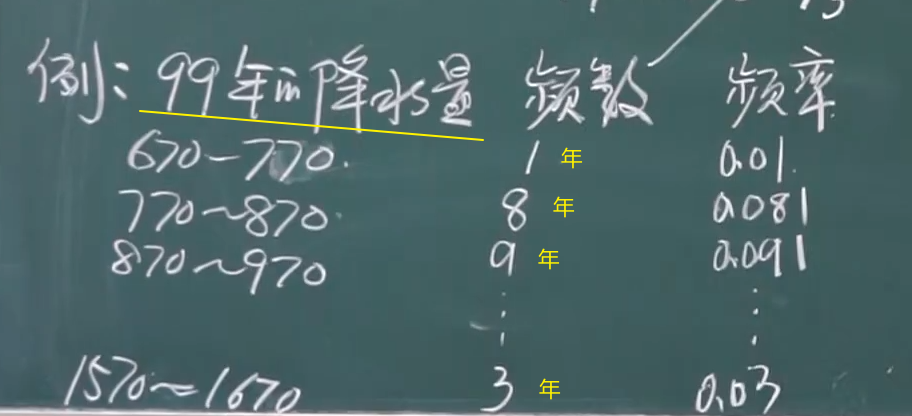 例: 99年的降水量 频数 频率
670~770. 1 年 0.01.
770~870. 8 年 0.081
870~970 9 年 0.091
⋮ ⋮
1570~1670 3 年 0.03